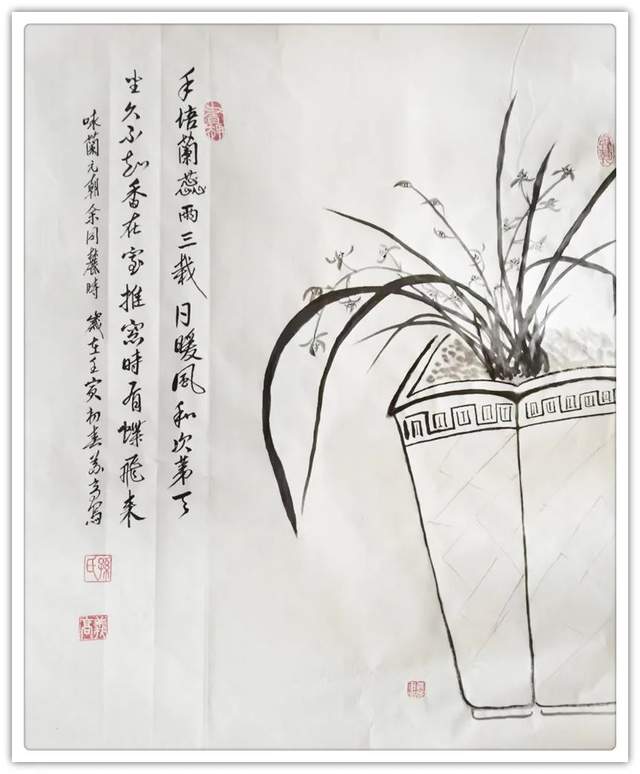 手培蘭蕊兩三栽日暖風和次第开
坐久不知香在室推窓時有蝶飛来
咏蘭元朝余同麓時歲在壬寅初春義高寫
孫氏
義高